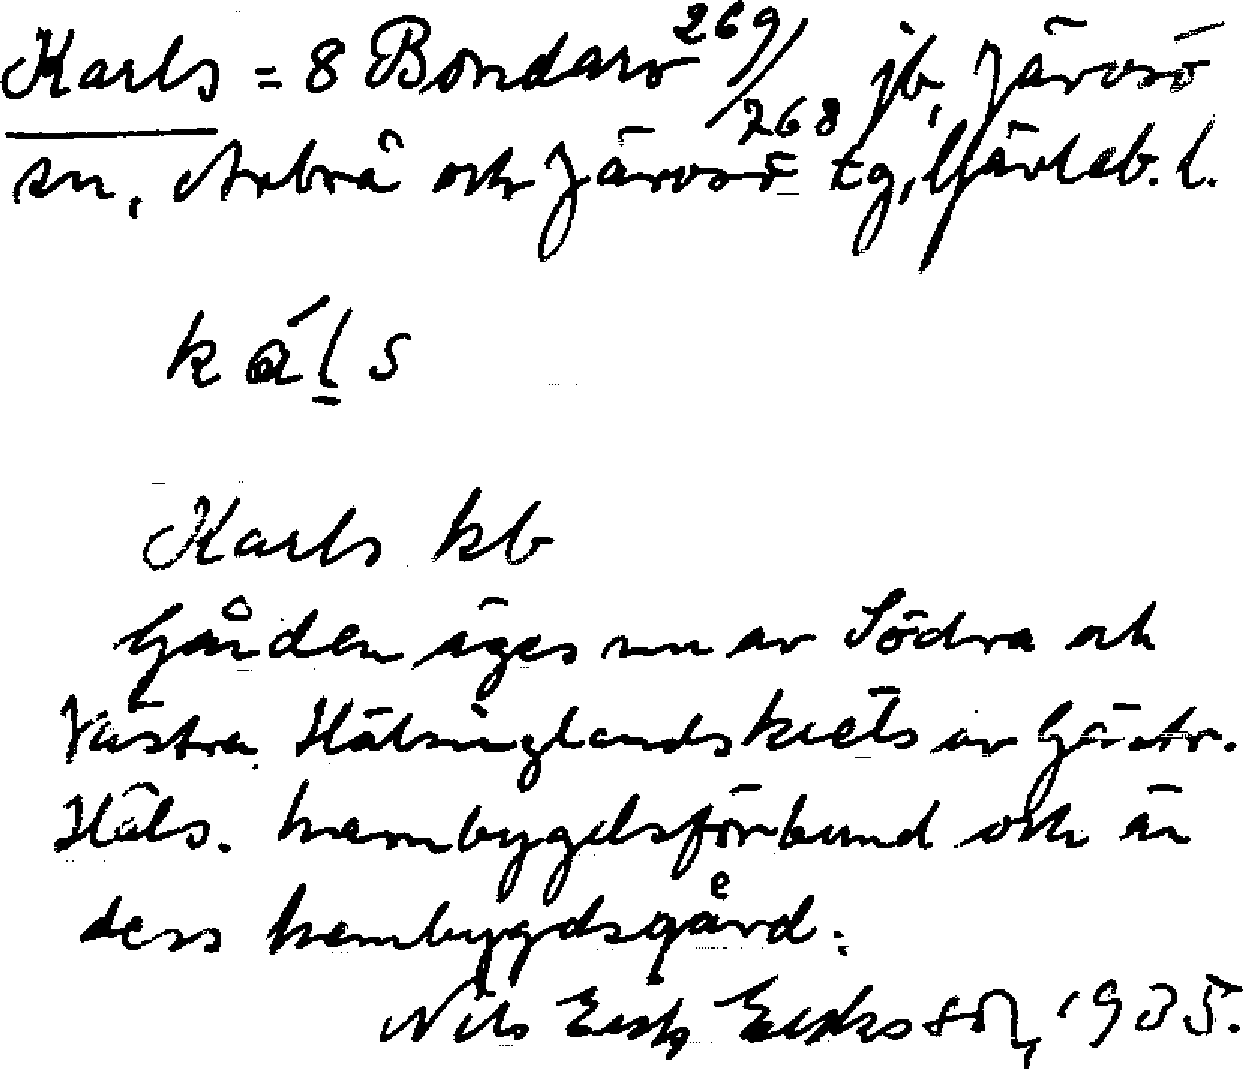 Karls = 8 Bondarv 269/268 jb, Järvsö
sn, Arbrå och Järvsö tg, Gävleb. l.
káḷs
Karls kb
Gården äges nu av Södra och
Västra Hälsinglandskrets av Gästr.
Häls. hembygdsförbund och är
dess hembygdsgård.
Nils Erik Eriksson, 1935.